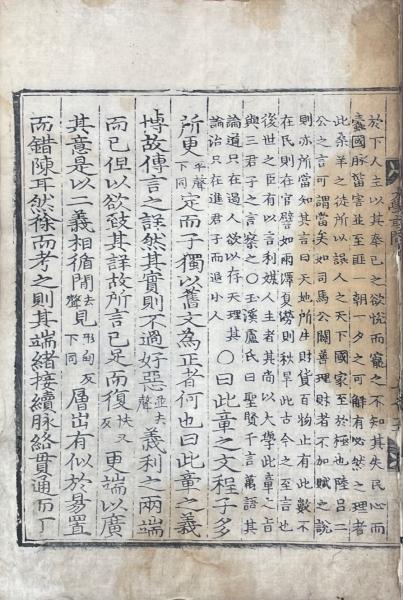 於下人主以其奉己之欲悅而寵之不知其失民心而
蠹國脉菑害並至匪一朝一夕之可解有必然之理者
此桑羊之徒所以誤人之天下國家至於極也陸呂二
公之言可謂當矣如司馬公闢善理財者不加賦之說
則亦所當知其言曰天地所生財貨百物止有此數不
在民則在官譬如雨澤夏澇則秋旱此古今之至言也
後世之臣有以言利媒人主者其尚以大學此章之旨
與三君子之言察之○玉溪盧氏曰聖賢千言萬語其
論道只在遏人欲以存天理其
論治只在進君子而退小人
○曰此章之文程子多
所更平聲下同定而子獨以舊文為正者何也曰此章之義
博故傳言之詳然其實則不過好惡並去聲義利之兩端
而已但以欲致其詳故所言已足而復扶又反更端以廣
其意是以二義相循閒去聲見形甸反下同層出有似於易置
而錯陳耳然徐而考之則其端緒接續脉絡貫通而丁